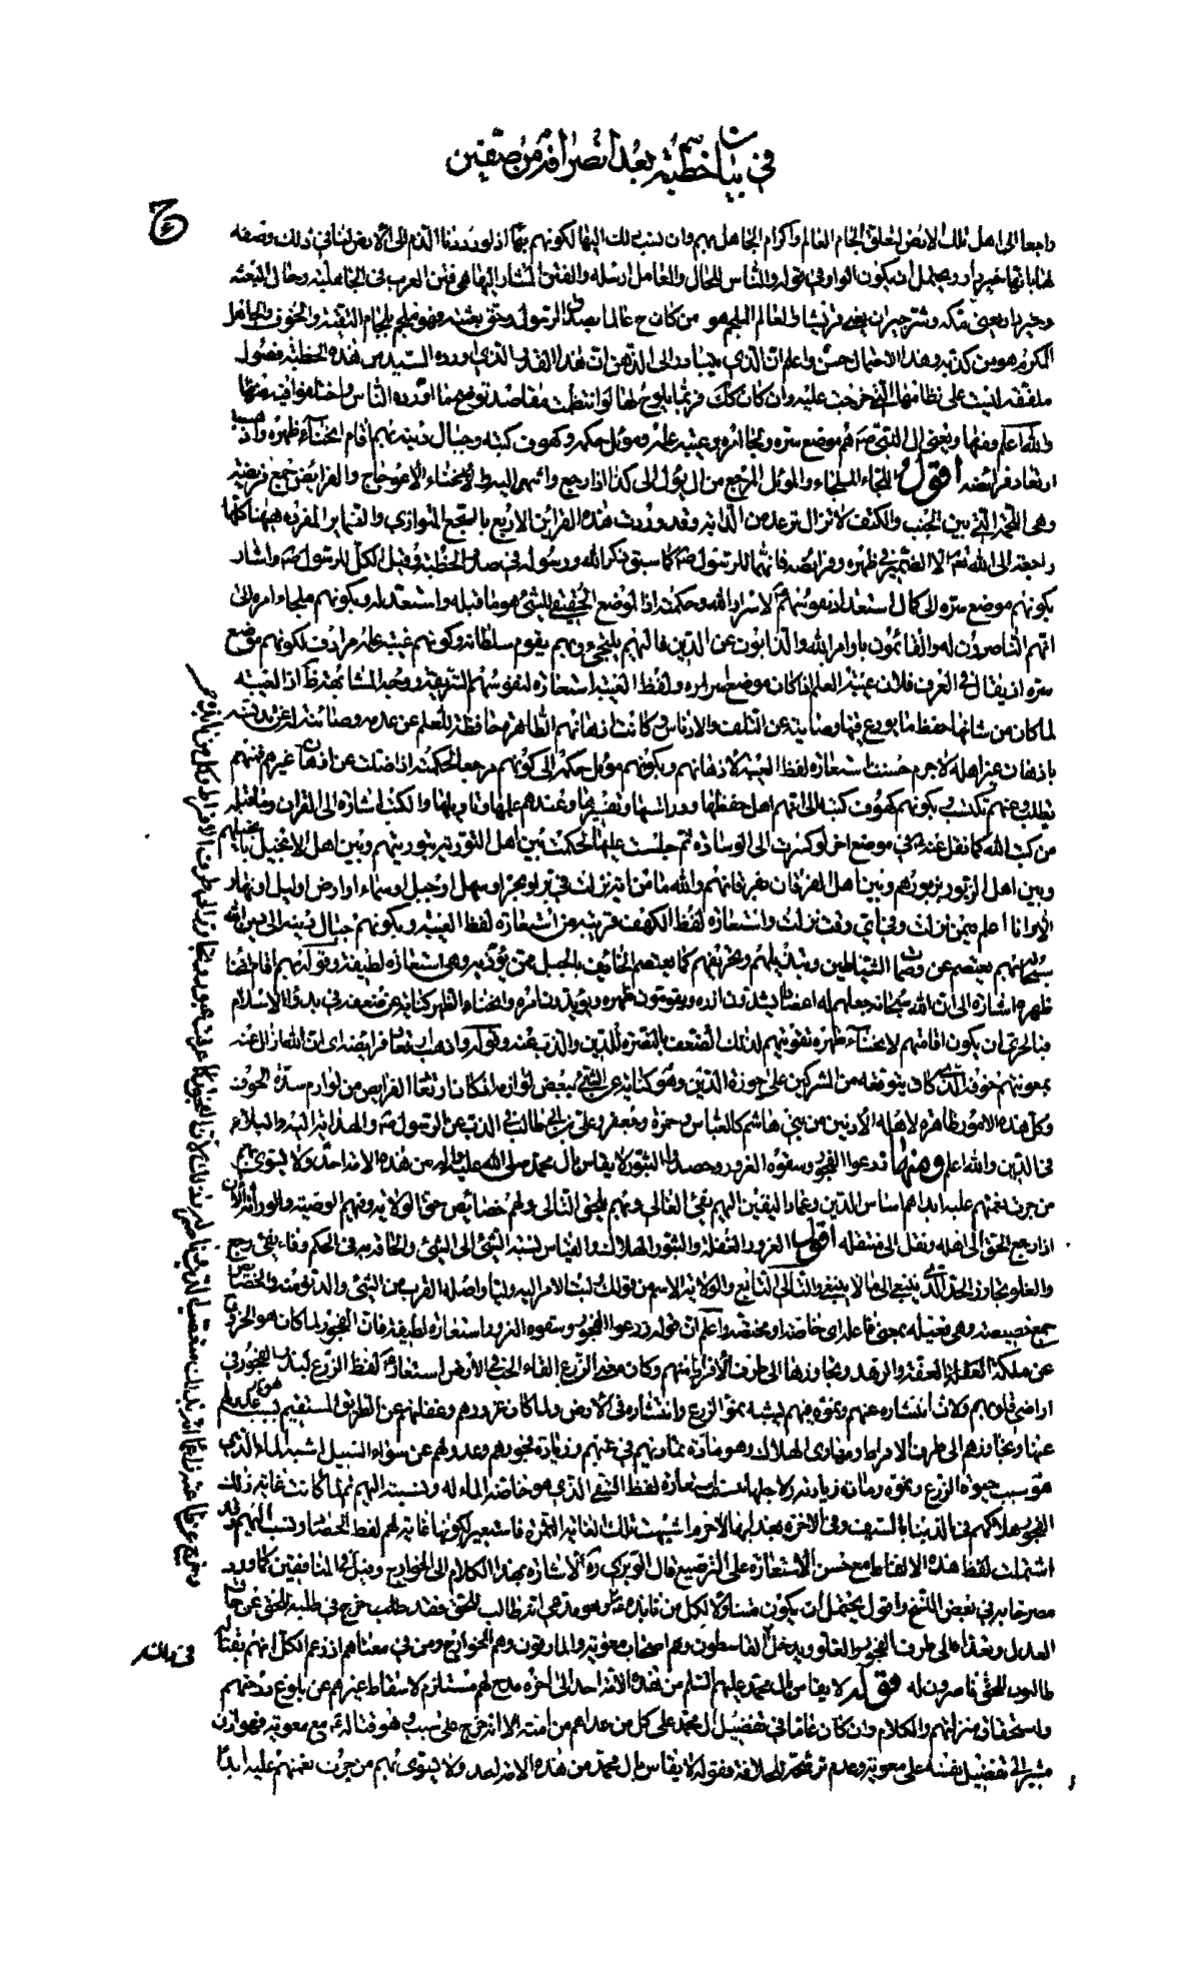 في بيان خطبته بعد انصرافه من صفين
راجعا الى اهل تلك الارض لتعلق الجام العالم واكرام الجاهل بهم وان نسب ذلك اليها لكونهم بها اذ لو رددنا الذم الى الارض لنا في ذلك وصفه
لها بانها خير دار ويحتمل ان يكون الواو في قوله والناس للحال والعامل ارسله والفتن المشار اليها هي فتن العرب في الجاهلية وحال البعثة
وخير دار يعنى مكة وشر جيران يعنى قريشا والعالم الملجم هو من كان ح عالما بصدق الرسول وتحقق بعثته فهو ملجم بلجام التقية والخوف والجاهل
المكرم هو من كذبه وهذا الاحتمال حسن واعلم ان الذي يتبادر الى الذهن ان هذا القدر الذي اورده السيد من هذه الخطبة فصول
ملفقة ليست على نظامها التي خرجت عليه وان كان كذلك فربما يلوح لها لو انتظمت مقاصد توضح مما اورده الناس واختلفوا فيه منها
والله اعلم ومنها ويعنى آل النبي صم هم موضع سره ولجا امره وعيبة علمه وموئل حكمه وكهوف كتبه وجبال دينه بهم اقام انحناء ظهره واذهب
ارتعاد فرائصه اقول اللجاء الملجاء والموئل المرجع من آل يؤل الى كذا اذا رجع وانتهى اليه والانحناء الاعوجاج والفرائص جمع فريصة
وهى اللحمة التي بين الجنب والكتف لا تزال ترعد من الدابة وقد وردت هذه القرائن الاربع بالسجع المتوازي والضمائر المفردة ههنا كلها
راجعة الى الله تعم الا الضمير في ظهره وفرائصه فانهما للرسول صم كما سبق ذكر الله ورسوله في صدر الخطبة وقيل الكل للرسول صم واشار
بكونهم موضع سره الى كمال استعداد نفوسهم لاسرار الله وحكمته اذ الموضع الحقيقي للشئ هو ما قبله واستعد له وبكونهم ملجاء امره الى
انهم الناصرون له والقائمون باوامر الله والذابون عن الدين فاليهم يلتجئ وبهم يقوم سلطانه وكونهم عيبة علمه مرادف لكونهم موضع
سره اذ يقال في العرف فلان عيبة العلم اذا كان موضع اسراره ولفظ العيبة استعارة لنفوسهم الشريفة ووجه المشابهة ظ اذ العيبة
لما كان من شانها حفظ ما يودع فيها وصيانته عن التلف والادناس وكانت اذهانهم الطاهرة حافظة للعلم عن عدمه وصائنة له عن تدنسه
باذهان غير اهله لا جرم حسنت استعارة لفظ العيبة لاذهانهم وبكونهم موئل حكمه الى كونهم مرجعا لحكمته اذا ضلت عن اذهان غيرهم فمنهم
تطلب وعنهم تكتسب وبكونهم كهوف كتبه الى انهم اهل حفظها ودراستها وتفسيرها وعندهم علمها وتاويلها والكتب اشارة الى القران وما قبله
من كتب الله كما نقل عنه في موضع اخر لو كسرت الى الوسادة ثم جلست عليها لحكمت بين اهل التورية بتوريتهم وبين اهل الانجيل بانجيلهم
وبين اهل الزبور بزبورهم وبين اهل الفرقان بفرقانهم والله ما من اية نزلت في بر او بحر او سهل او جبل او سماء او ارض او ليل او نهار
الا وانا اعلم فيمن نزلت وفي اي وقت نزلت واستعارة لفظ الكهف قريبة من استعارة لفظ العيبة وبكونهم جبال دينه الى دين الله
سبحانه بهم يعتصم عن وصمات الشياطين وتبديلهم وتحريفهم كما يعتصم الخائف بالجبل ممن يؤذيه وهى استعارة لطيفة وقوله بهم اقام انحناء
ظهره اشارة الى ان الله سبحانه جعلهم له اعضادا يشدون ازره ويقومون ظهره ويؤيدون امره وانحناء الظهر كناية عن ضعفه في بدو الاسلام
فبالحري ان يكون اقامتهم لانحناء ظهره تقويتهم لذلك الضعف بالنصرة للدين والذب عنه وقوله واذهب ارتعاد فرائصه اى ان الله ازال عنه
بمعونتهم خوفه الذي كان يتوقعه من المشركين على حوزة الدين وهو كناية عن الشئ ببعض لوازمه اذ كان ارتعاد الفرايص من لوازم شدة الخوف
وكل هذه الامور ظاهرة لاهله الادنين من بني هاشم كالعباس وحمزة وجعفر وعلي بن ابي طالب في الذب عن الرسول صم والهداية اليه والبلاء
في الدين والله اعلم ومنها زرعوا الفجور وسقوه الغرور وحصدوا الثبور لا يقاس بال محمد صلى الله عليه واله من هذه الامة احد ولا يسوى بهم
من جرت نعمتهم عليه ابدا هم اساس الدين وعماد اليقين اليهم يفئ الغالي وبهم يلحق التالي ولهم خصائص حق الولاية وفيهم الوصية والوراثة الان
اذا رجع الحق الى اهله ونقل الى منتقله اقول الغرور الغفلة والثبور الهلاك والقياس نسبة الشئ الى الشئ والحاقه به في الحكم وفاء يفئ رجع
والغلو تجاوز الحد الذي ينبغي الى ما لا ينبغي والتالي التابع والولاية الاسم من قولك وليت الامر اليه وليا واصله القرب من الشئ والدنو منه والخصائص
جمع خصيصة وهى فعيلة بمعنى فاعلة اى خاصة او مختصة واعلم ان قوله زرعوا الفجور وسقوه الغرور استعارة لطيفة فان الفجور لما كان هو الخروج
عن ملكة العفة والزهد وتجاوزها الى طرف الافراط منهم وكان معنى الزرع القاء الحب في الارض استعار لفظ الزرع لبذر الفجور في
اراضى قلوبهم ولان انتشاره عنهم ونموه فيهم يشبه نمو الزرع وانتشاره في الارض ولما كان غرورهم وغفلتهم عن الطريق المستقيم بسبب عدولهم
عنها وتجاوزهم الى طرف الافراط ومهاوى الهلاك وهو مادة تماديهم في غيهم وزيادة فجورهم وعدولهم عن سواء السبيل اشبه الماء الذي
هو سبب حيوة الزرع ونموه ومادة زيادته ولاجلها استعار لفظ السقي الذي هو خاصة الماء له ونسبته اليهم ثم لما كانت غاية ذلك
الفجور هلاكهم في الدنيا بالسيف وفي الاخرة بعذابها لا جرم اشبهت تلك الغاية الثمرة فاستعير لكونها غاية لهم لفظ الحصاد ونسب اليهم وقد
اشتملت لفظ هذه الالفاظ مع حسن الاستعارة على الترصيع قال الوبرى ره الاشارة بهذا الكلام الى الخوارج وقيل في المنافقين كما ورد
مصرحا به في بعض النسخ واقول يحتمل ان يكون متناولا لكل من نابذه ع وهو مدعى انه طالب للحق فقد طلب خرج في طلبه للحق عن حاق
العدل وتعداه الى طرف الفجور والغلو ويدخل القاسطون وهم اصحاب معوية والمارقون وهم الخوارج ومن في معناهم اذ زعم الكل انهم بقتاله
طالبون للحق ناصرون له وقوله لا يقاس بال محمد عليهم السلم من هذه الامة احد الى اخره مدح لهم مستلزم لاسقاط غيرهم عن بلوغ درجتهم
واستحقاق منزلتهم والكلام وان كان عاما في تفضيل ال محمد على كل من عداهم من امته الا انه خرج على سبب وهو قتاله ع مع معوية فهو اذن
مشير الى تفضيل نفسه على معوية وعدم ترشحه للخلافة فقوله لا يقاس بال محمد من هذه الامة احد ولا يسوى بهم من جرت نعمتهم عليه ابدا
في ماله